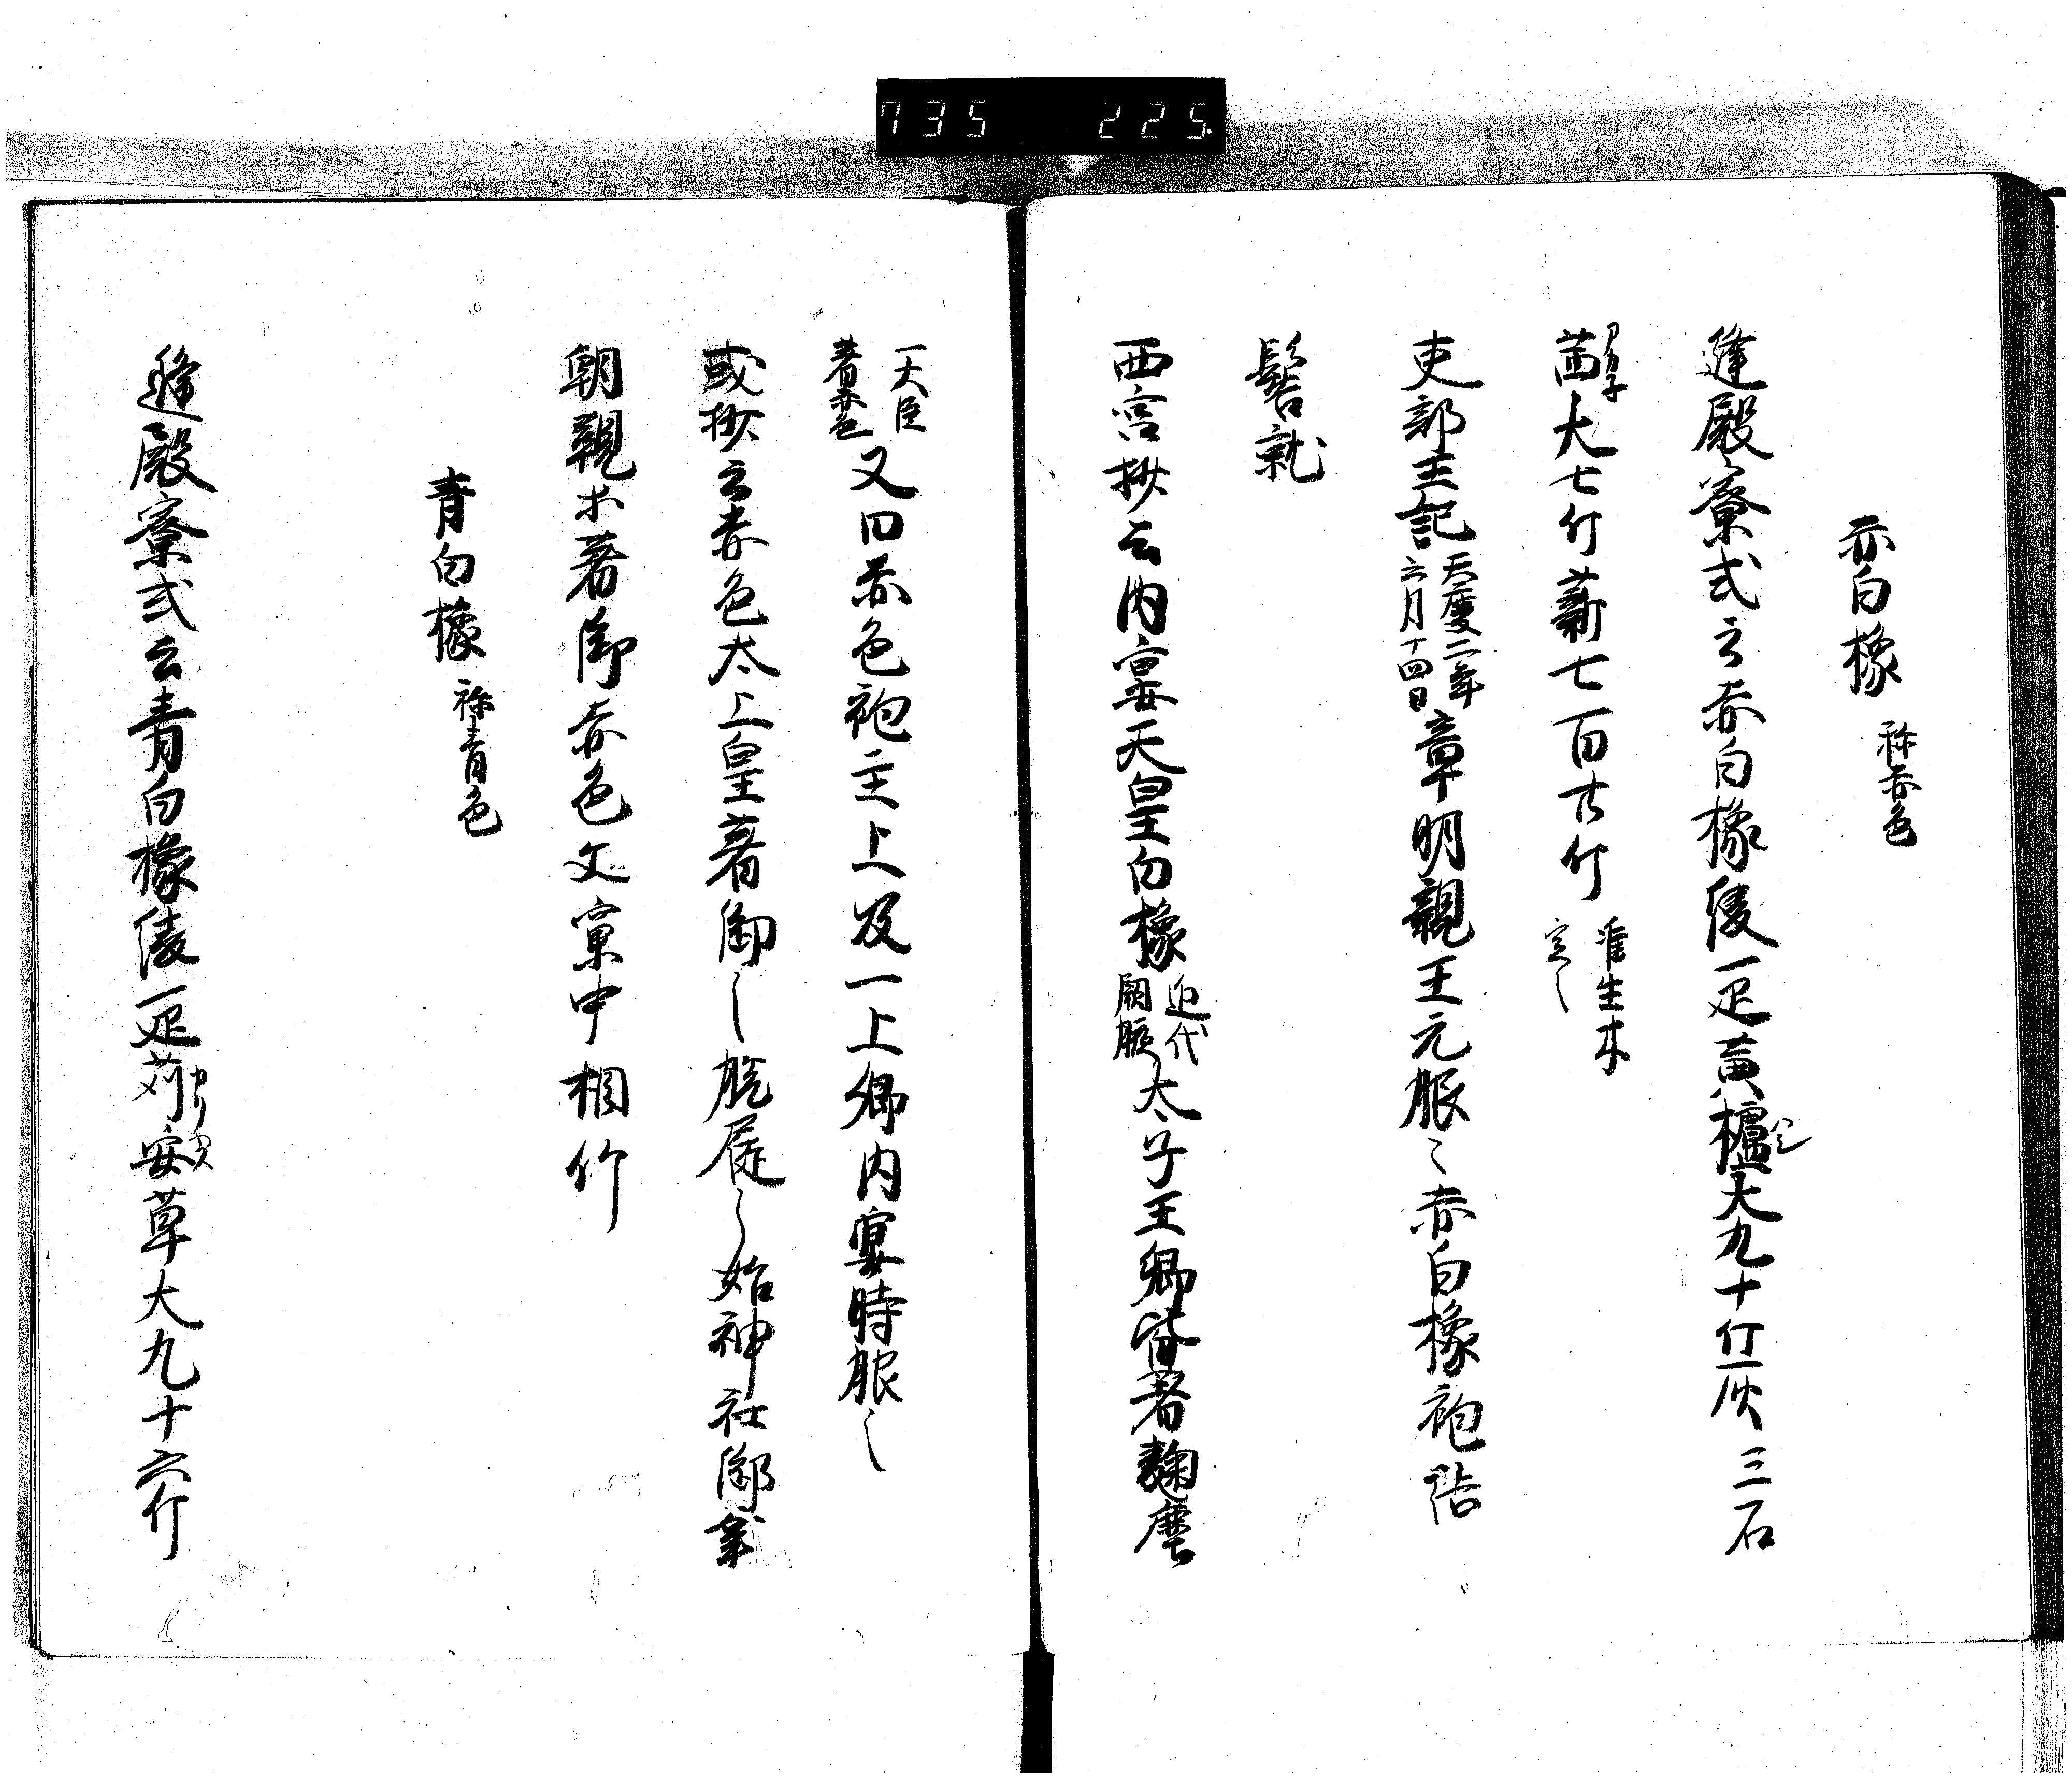 735 225
赤白橡 称赤色
縫殿寮式云赤白橡綾一疋黄櫨大九十斤灰三石
茜大七斤薪七百廿斤 准生木定之
吏部王記 天慶二年六月十四日 章明親王元服〻赤白橡袍詰
髻就
西宮抄云内宴天皇白橡 近代闕腋 太子王卿皆著麹塵
一大臣著赤色 又曰赤色袍主上及一上卿内宴時服之
或抄云赤色太上皇著御之脱屣之始神社御幸
朝覲木著御赤色文窠中桐竹
青白橡 称青色
縫殿寮式云青白橡綾一疋苅安草大九十六斤